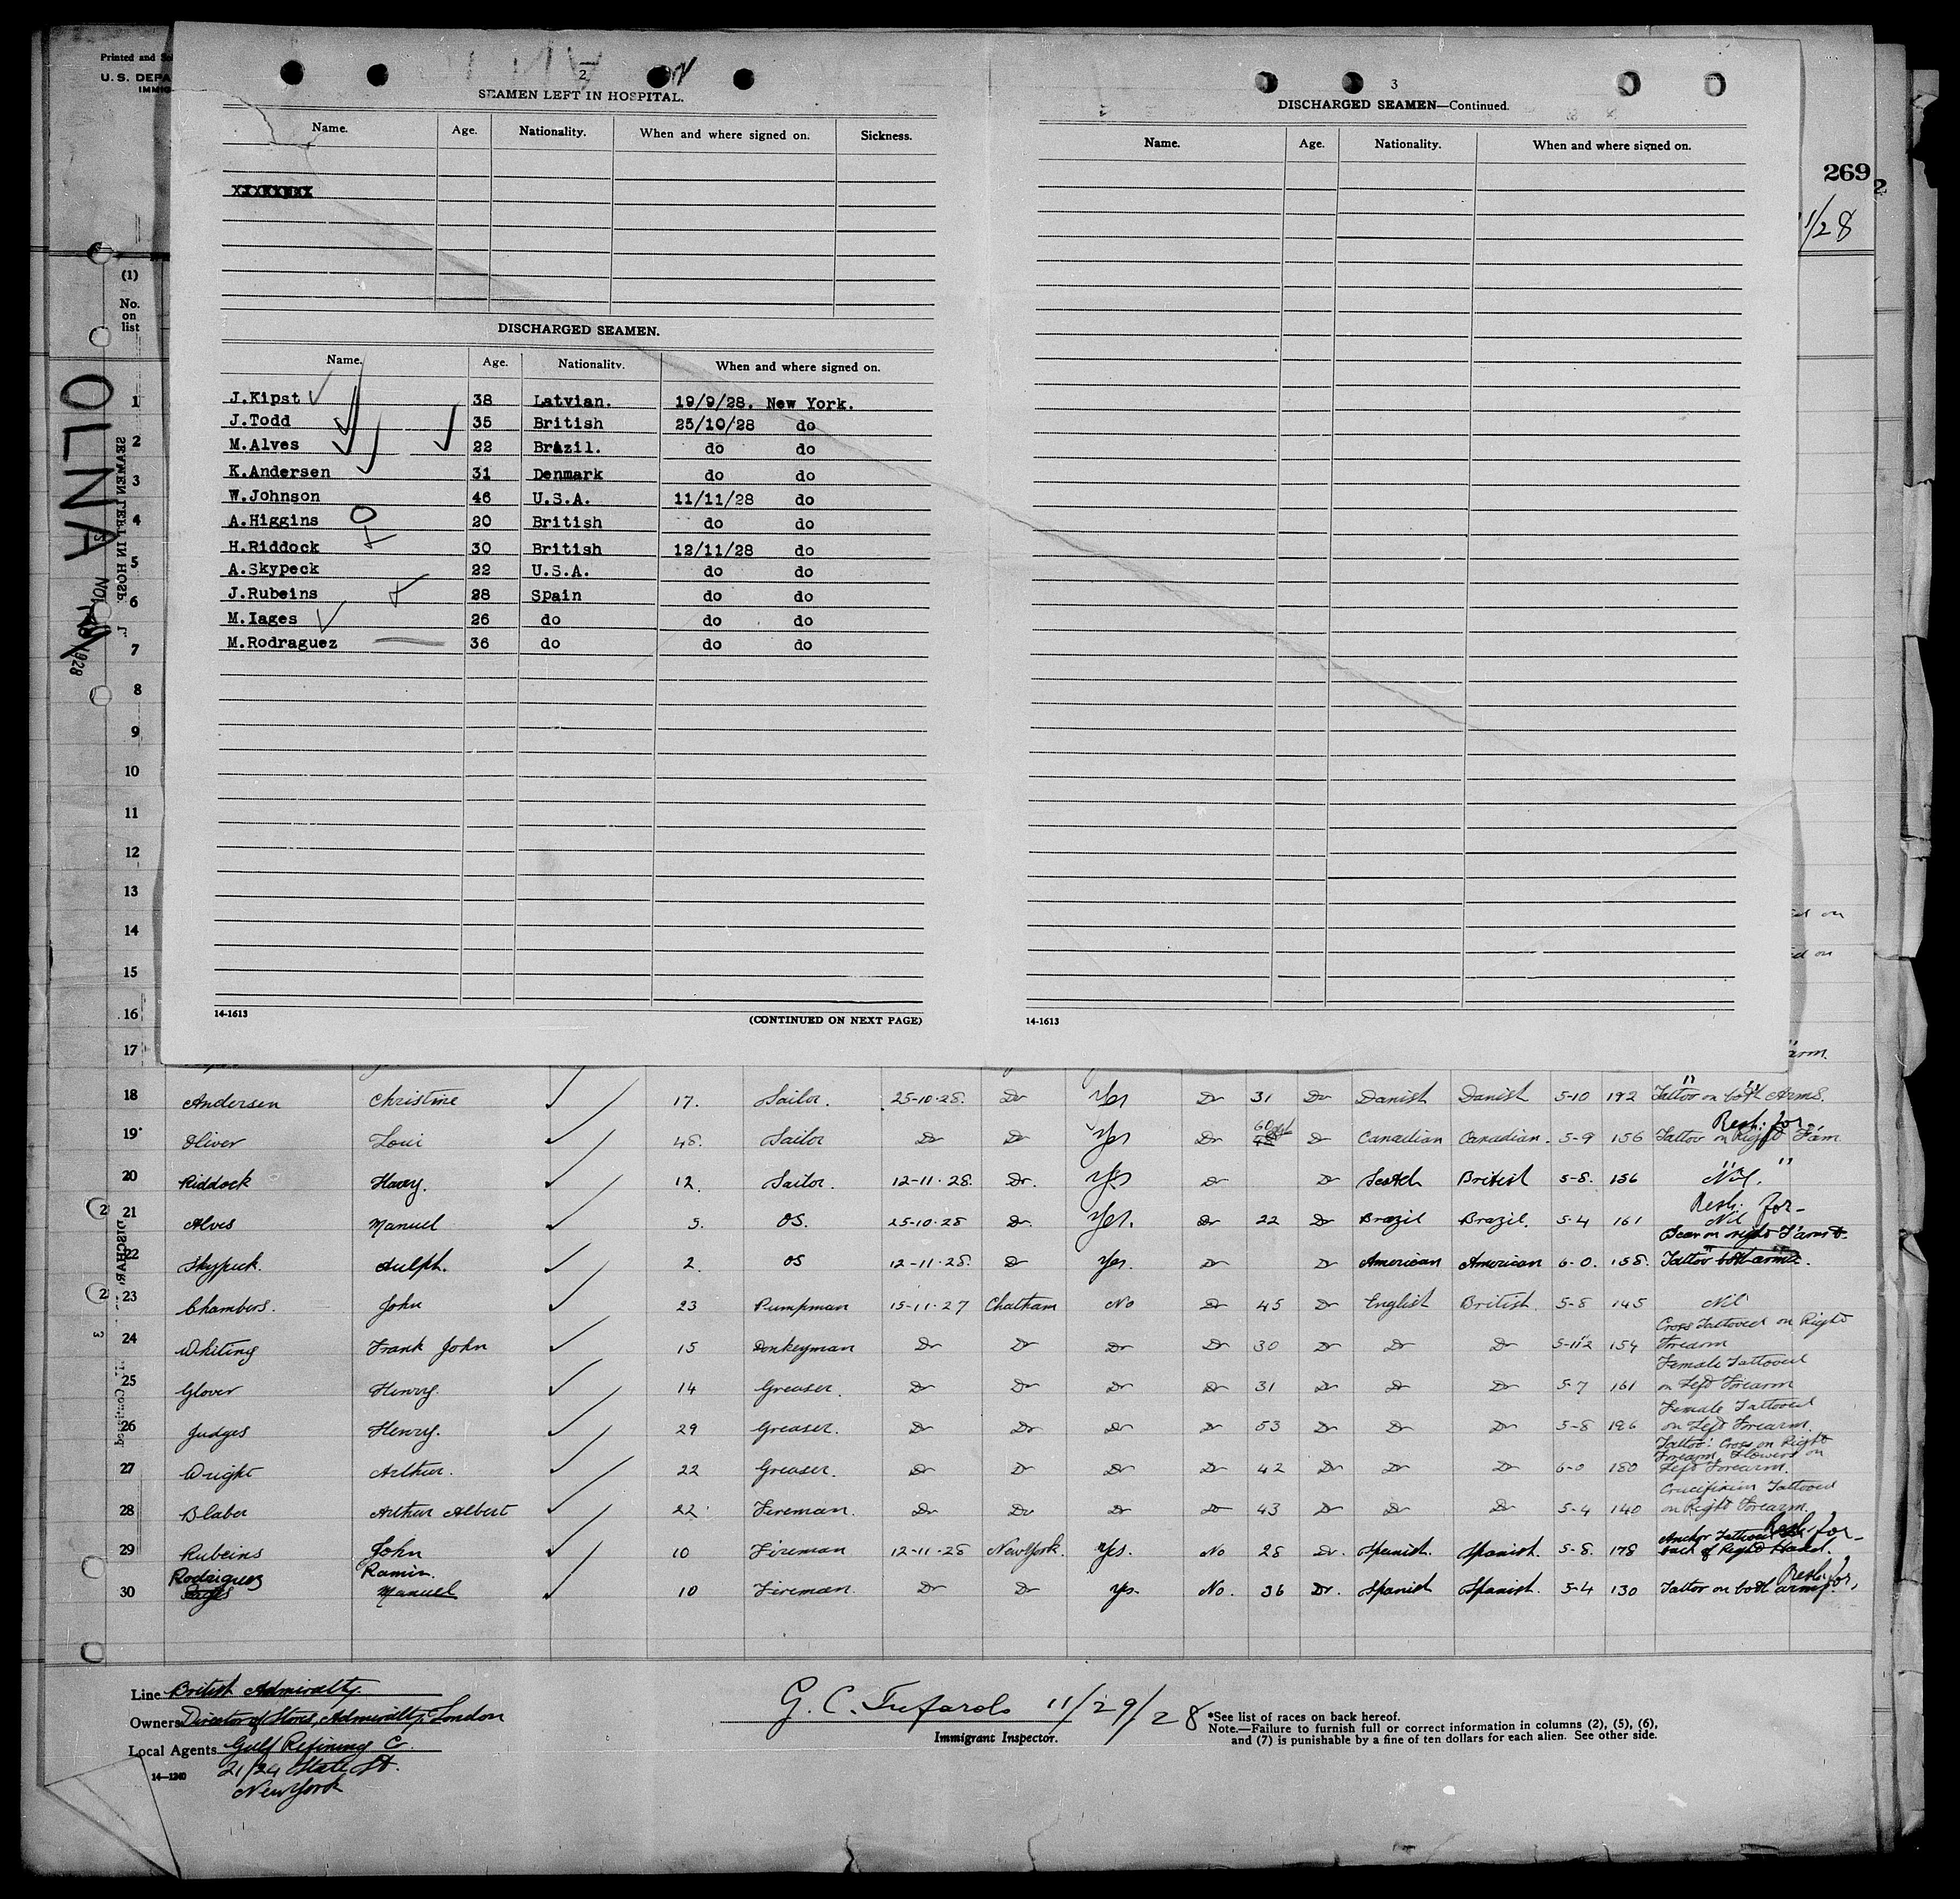 Printed and
U. S. DEPA
IMMIG
2
SEAMEN LEFT IN HOSPITAL.
Name. Age. Nationality. When and where signed on. Sickness.
3
DISCHARGED SEAMEN—Continued.
Name. Age. Nationality. When and where signed on.
269
2
11/28
(1)
No.
on
list
OLNA
1928
DISCHARGED SEAMEN.
Name. Age. Nationality. When and where signed on.
J.Kipst 38 Latvian. 19/9/28. New York.
J.Todd 35 British 25/10/28 do
M.Alves 22 Brazil. do do
K.Andersen 31 Denmark do do
W.Johnson 46 U.S.A. 11/11/28 do
A.Higgins 20 British do do
H.Riddock 30 British 12/11/28 do
A.Skypeck 22 U.S.A. do do
J.Rubeins 28 Spain do do
M.Iages 26 do do do
M.Rodraguez 36 do do do
14-1613 (CONTINUED ON NEXT PAGE)
14-1613
1
2
3
4
5
6
7
8
9
10
11
12
13
14
15
16
17
18 Andersen Christine 17. Sailor. 25-10-28. Do Yes Do 31 Do Danish Danish 5-10 192 Tattoo on both Arms.
19 Oliver Loui 48. Sailor Do Do Yes Do 60 Do Canadian Canadian. 5-9 156 Tattoo on Right F'arm
20 Riddock Harry. 12. Sailor. 12-11-28. Do. Yes Do Do Scotch British 5-8. 156 Nil.
21 Alves Manuel 5. OS. 25-10-28 Do. Yes. Do 22 Do Brazil Brazil. 5-4 161 Nil
22 Skypeck. Aulph. 2. OS 12-11-28. Do Yes. Do Do American American 6-0. 158. Scar on right F'arm & Tattoo both arms.
23 Chambers. John 23 Pumpman 15-11-27 Chatham No Do 45 Do English British 5-8 145 Nil
24 Whiting Frank John 15 Donkeyman Do Do Do Do 30 Do Do Do 5-11½ 154 Cross Tattooed on Right Forearm
25 Glover Henry. 14 Greaser. Do Do Do Do 31 Do Do Do 5-7 161 Female Tattooed on Left Forearm
26 Judges Henry. 29 Greaser. Do Do Do Do 53 Do Do Do 5-8 196 Female Tattooed on Left Forearm.
27 Wright Arthur. 22 Greaser. Do Do Do Do 42 Do Do Do 6-0 180 Tattoo: Cross on Right Forearm, Flowers on Left Forearm.
28 Blaber Arthur Albert 22 Fireman. Do Do Do Do 43 Do Do Do 5-4 140 Crucifixion Tattooed on Right Forearm.
29 Rubeins John 10 Fireman 12-11-28 New York. Yes. No 28 Do. Spanish. Spanish. 5-8. 178 Anchor Tattooed back of Right Hand.
Rodriguez Ramin.
30 Manuel 10 Fireman. Do Do Yes. No. 36 Do. Spanish Spanish. 5-4 130 Tattoo on both arms.
Line British Admiralty
Owners Director of Stores, Admiralty, London
Local Agents Gulf Refining Co.
21/24 State St.
New York
14—1240
G. C. Tufarolo 11/29/28
Immigrant Inspector.
*See list of races on back hereof.
Note.—Failure to furnish full or correct information in columns (2), (5), (6),
and (7) is punishable by a fine of ten dollars for each alien. See other side.